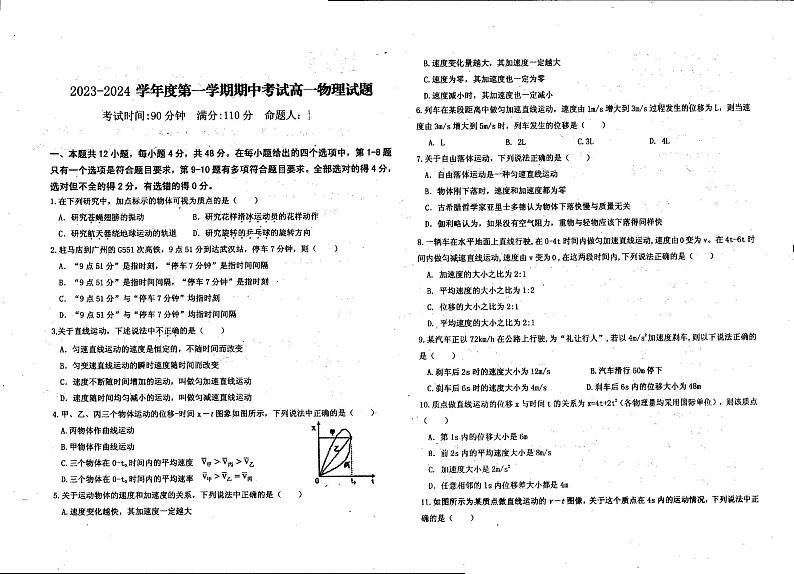 2023-2024 学年度第一学期期中考试高一物理试题
考试时间:90 分钟 满分:110 分 命题人:
一、本题共 12 小题，每小题 4 分，共 48 分。在每小题给出的四个选项中，第 1-8 题
只有一个选项是符合题目要求，第 9-10 题有多项符合题目要求。全部选对的得 4 分，
选对但不全的得 2 分，有选错的得 0 分。
1.在下列研究中，加点标示的物体可视为质点的是（ ）
A．研究苍蝇翅膀的振动 B．研究花样滑冰运动员的花样动作
C．研究航天器绕地球运动的轨道 D．研究旋转的乒乓球的旋转方向
2.驻马店到广州的 G551 次高铁，9 点 51 分到达武汉站，停车 7 分钟，则（ ）
A．“9 点 51 分”是指时刻，“停车 7 分钟”是指时间间隔
B．“9 点 51 分”是指时间间隔，“停车 7 分钟”是指时刻
C．“9 点 51 分”与“停车 7 分钟”均指时刻
D．“9 点 51 分”与“停车 7 分钟”均指时间间隔
3.关于直线运动，下述说法中不正确的是（ ）
A．匀速直线运动的速度是恒定的，不随时间而改变
B．匀变速直线运动的瞬时速度随时间而改变
C．速度不断随时间增加的运动，叫做匀加速直线运动
D．速度随时间均匀减小的运动，叫做匀减速直线运动
4.甲、乙、丙三个物体运动的位移-时间 x－t 图象如图所示，下列说法中正确的是（ ）
A.丙物体作曲线运动
B.甲物体作曲线运动
C.三个物体在 0-t₀时间内的平均速度 v̅甲＞v̅丙＞v̅乙
D.三个物体在 0-t₀时间内的平均速率 v̅甲＞v̅乙＝v̅丙
x
甲
乙
丙
0
t₀
t
5.关于运动物体的速度和加速度的关系，下列说法中正确的是（ ）
A.速度变化越快，其加速度一定越大
B.速度变化量越大，其加速度一定越大
C.速度为零，其加速度也一定为零
D.速度减小时，其加速度也一定减小
6.列车在某段距离中做匀加速直线运动，速度由 1m/s 增大到 3m/s 过程发生的位移为 L，则当速
度由 3m/s 增大到 5m/s 时，列车发生的位移是（ ）
A．L B．2L C.3L D．4L
7.关于自由落体运动，下列说法正确的是（ ）
A．自由落体运动是一种匀速直线运动
B．物体刚下落时，速度和加速度都为零
C．古希腊哲学家亚里士多德认为物体下落快慢与质量无关
D．伽利略认为，如果没有空气阻力，重物与轻物应该下落得同样快
8.一辆车在水平地面上直线行驶,在 0-4t 时间内做匀加速直线运动,速度由 0 变为 v。在 4t-6t 时
间内做匀减速直线运动,速度由 v 变为 0,在这两段时间内,下列说法正确的是（ ）
A．加速度的大小之比为 2:1
B．平均速度的大小之比为 1:2
C．位移的大小之比为 2:1
D．平均速度的大小之比为 2:1
9.某汽车正以 72km/h 在公路上行驶,为“礼让行人”,若以 4m/s²加速度刹车,则以下说法正确的
是（ ）
A.刹车后 2s 时的速度大小为 12m/s B.汽车滑行 50m 停下
C.刹车后 6s 时的速度大小为 4m/s D.刹车后 6s 内的位移大小为 48m
10.质点做直线运动的位移 x 与时间 t 的关系为 x=4t+2t²（各物理量均采用国际单位），则该质点
（ ）
A．第 1s 内的位移大小是 6m
B．前 2s 内的平均速度大小是 8m/s
C．加速度大小是 2m/s²
D．任意相邻的 1s 内位移差大小都是 4m
11.如图所示为某质点做直线运动的 v－t 图像，关于这个质点在 4s 内的运动情况，下列说法中正
确的是（ ）